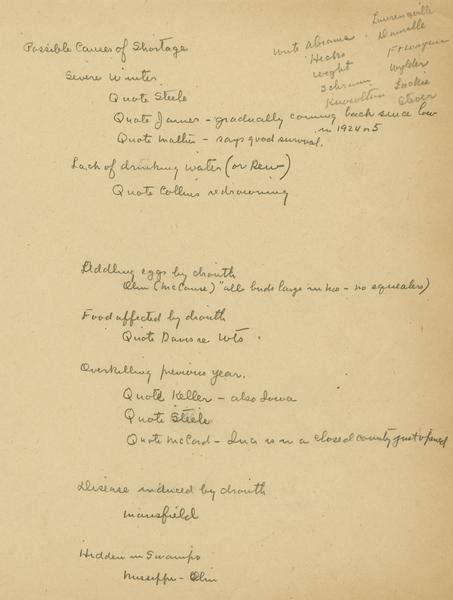 Possible Causes of Shortage
Write Abrams - Lawrenceville
Hicks - Danville
Wright Ft Wayne
Schramm Wylder
Lackie
Stover
Severe Winter
Quote Steele
Quote James - gradually coming back since low
in 1924 or 5
Quote Mather - says good survival.
Lack of drinking water (or Dew)
Quote Collins re drowning
Addling eggs by drouth
Olin (McCanse) "all birds large in Mo - no squealers)
Food affected by drouth
Quote Davis re Wts.
Overkilling previous year.
Quote Keller - also Iowa
Quote Steele
Quote McCord - Inc is in a closed county just opened
Disease induced by drouth
Mansfield
Hidden in Swamps
Mississippi - Olin